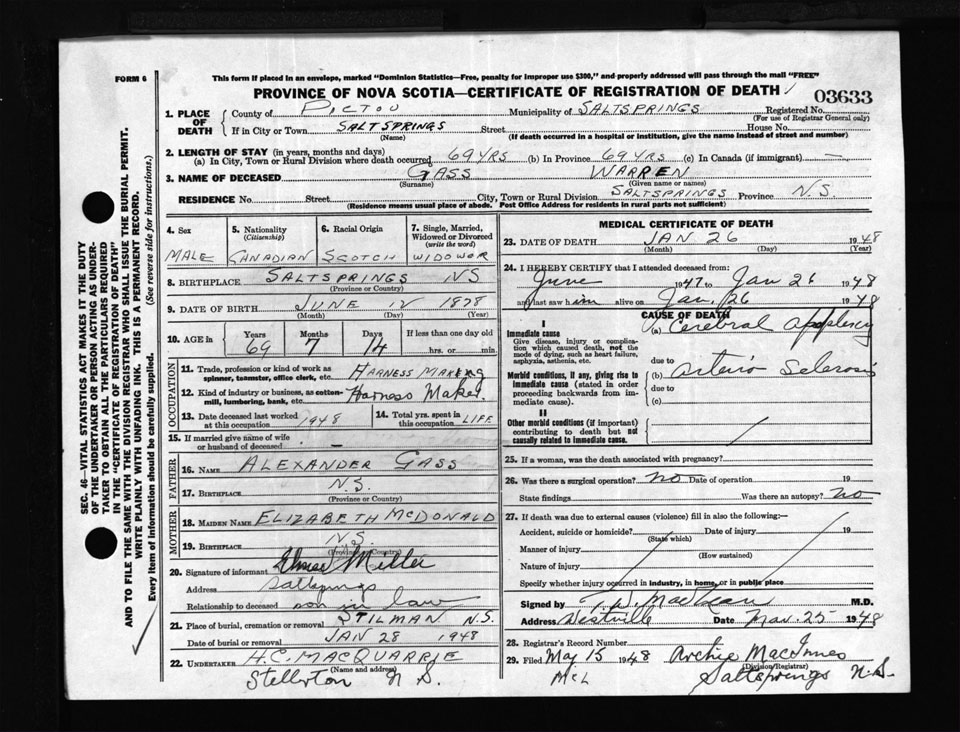 FORM 6
This form if placed in an envelope, marked "Dominion Statistics—Free, penalty for improper use $300," and properly addressed will pass through the mail "FREE"
PROVINCE OF NOVA SCOTIA—CERTIFICATE OF REGISTRATION OF DEATH
03633
1. PLACE OF DEATH
County of PICTOU Municipality of SALTSPRINGS Registered No.
(For use of Registrar General only)
If in City or Town SALTSPRINGS Street House No.
(Name) (If death occurred in a hospital or institution, give the name instead of street and number)
2. LENGTH OF STAY (in years, months and days)
(a) In City, Town or Rural Division where death occurred 69 YRS (b) In Province 69 YRS (c) In Canada (if immigrant) —
3. NAME OF DECEASED GASS WARREN
(Surname) (Given name or names)
RESIDENCE No. Street City, Town or Rural Division SALTSPRINGS Province N.S.
(Residence means usual place of abode. Post Office Address for residents in rural parts not sufficient)
4. Sex
MALE
5. Nationality (Citizenship)
CANADIAN
6. Racial Origin
SCOTCH
7. Single, Married, Widowed or Divorced (write the word)
WIDOWER
8. BIRTHPLACE SALTSPRINGS NS
(Province or Country)
9. DATE OF BIRTH JUNE 12 1878
(Month) (Day) (Year)
10. AGE in
Years Months Days If less than one day old
69 7 14 hrs. or min.
OCCUPATION
11. Trade, profession or kind of work as spinner, teamster, office clerk, etc. HARNESS MAKING
12. Kind of industry or business, as cotton-mill, lumbering, bank, etc. Harness Maker
13. Date deceased last worked at this occupation 1948
14. Total yrs. spent in this occupation LIFE
15. If married give name of wife or husband of deceased —
FATHER
16. NAME ALEXANDER GASS
17. BIRTHPLACE N.S.
(Province or Country)
MOTHER
18. MAIDEN NAME ELIZABETH MCDONALD
19. BIRTHPLACE N.S.
(Province or Country)
20. Signature of informant Miller
Address Saltsprings
Relationship to deceased son in law
21. Place of burial, cremation or removal STILMAN N.S.
Date of burial or removal JAN 28 1948
22. UNDERTAKER H.C. MACQUARRIE
(Name and address)
Stellerton N S.
MEDICAL CERTIFICATE OF DEATH
23. DATE OF DEATH JAN 26 1948
(Month) (Day) (Year)
24. I HEREBY CERTIFY that I attended deceased from:
June 1947 to Jan 26 1948
and last saw him alive on Jan. 26 1948
CAUSE OF DEATH
I
Immediate cause
Give disease, injury or complication which caused death, not the mode of dying, such as heart failure, asphyxia, asthenia, etc.
(a) Cerebral Apoplexy
due to
Morbid conditions, if any, giving rise to immediate cause (stated in order proceeding backwards from immediate cause).
(b) Arterio Sclerosis
due to
(c)
II
Other morbid conditions (if important) contributing to death but not causally related to immediate cause.
25. If a woman, was the death associated with pregnancy?
26. Was there a surgical operation? NO Date of operation 19
State findings Was there an autopsy? no
27. If death was due to external causes (violence) fill in also the following:—
Accident, suicide or homicide? Date of injury 19
(State which)
Manner of injury
(How sustained)
Nature of injury
Specify whether injury occurred in industry, in home, or in public place
Signed by MacLean M.D.
Address Westville Date Mar. 25 1948
28. Registrar's Record Number
29. Filed May 15 1948 Archie MacInnes
(Division Registrar)
McL Saltsprings N.S.
SEC. 46—VITAL STATISTICS ACT MAKES IT THE DUTY
OF THE UNDERTAKER OR PERSON ACTING AS UNDER-
TAKER TO OBTAIN ALL THE PARTICULARS REQUIRED
IN THE "CERTIFICATE OF REGISTRATION OF DEATH"
AND TO FILE THE SAME WITH THE DIVISION REGISTRAR WHO SHALL ISSUE THE BURIAL PERMIT.
WRITE PLAINLY WITH UNFADING INK. THIS IS A PERMANENT RECORD.
Every item of information should be carefully supplied. (See reverse side for instructions.)